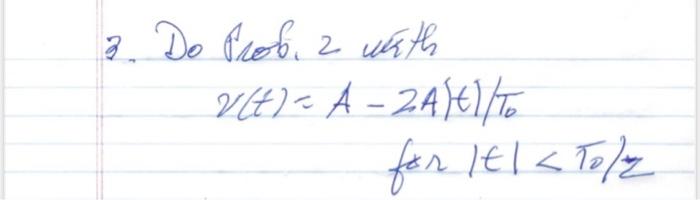 3. Do Prob. 2 with
v(t) = A - 2A|t|/T₀
for |t| < T₀/2